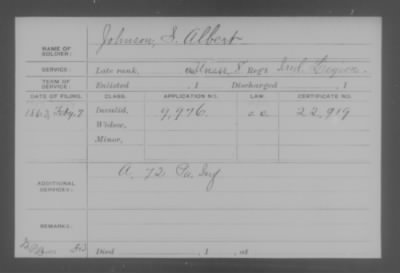 NAME OF SOLDIER: Johnson, S. Albert
SERVICE: Late rank, Reg't Ind. Legion.
TERM OF SERVICE: Enlisted , 1 Discharged , 1
DATE OF FILING. CLASS. APPLICATION NO. LAW. CERTIFICATE NO.
1863, Feby. 7 Invalid, 9,976 c.c. 22,919
Widow,
Minor,
ADDITIONAL SERVICES: A. 72 Pa. Inf
REMARKS:
Died , 1 , at